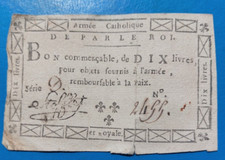 Armée Catholique
DE PAR LE ROI.
BON commerçable, de DIX livres,
pour objets fournis à l'armée,
remboursable à la paix.
Série
N°.
2499.
et royale.
Dix livres.
Dix livres.